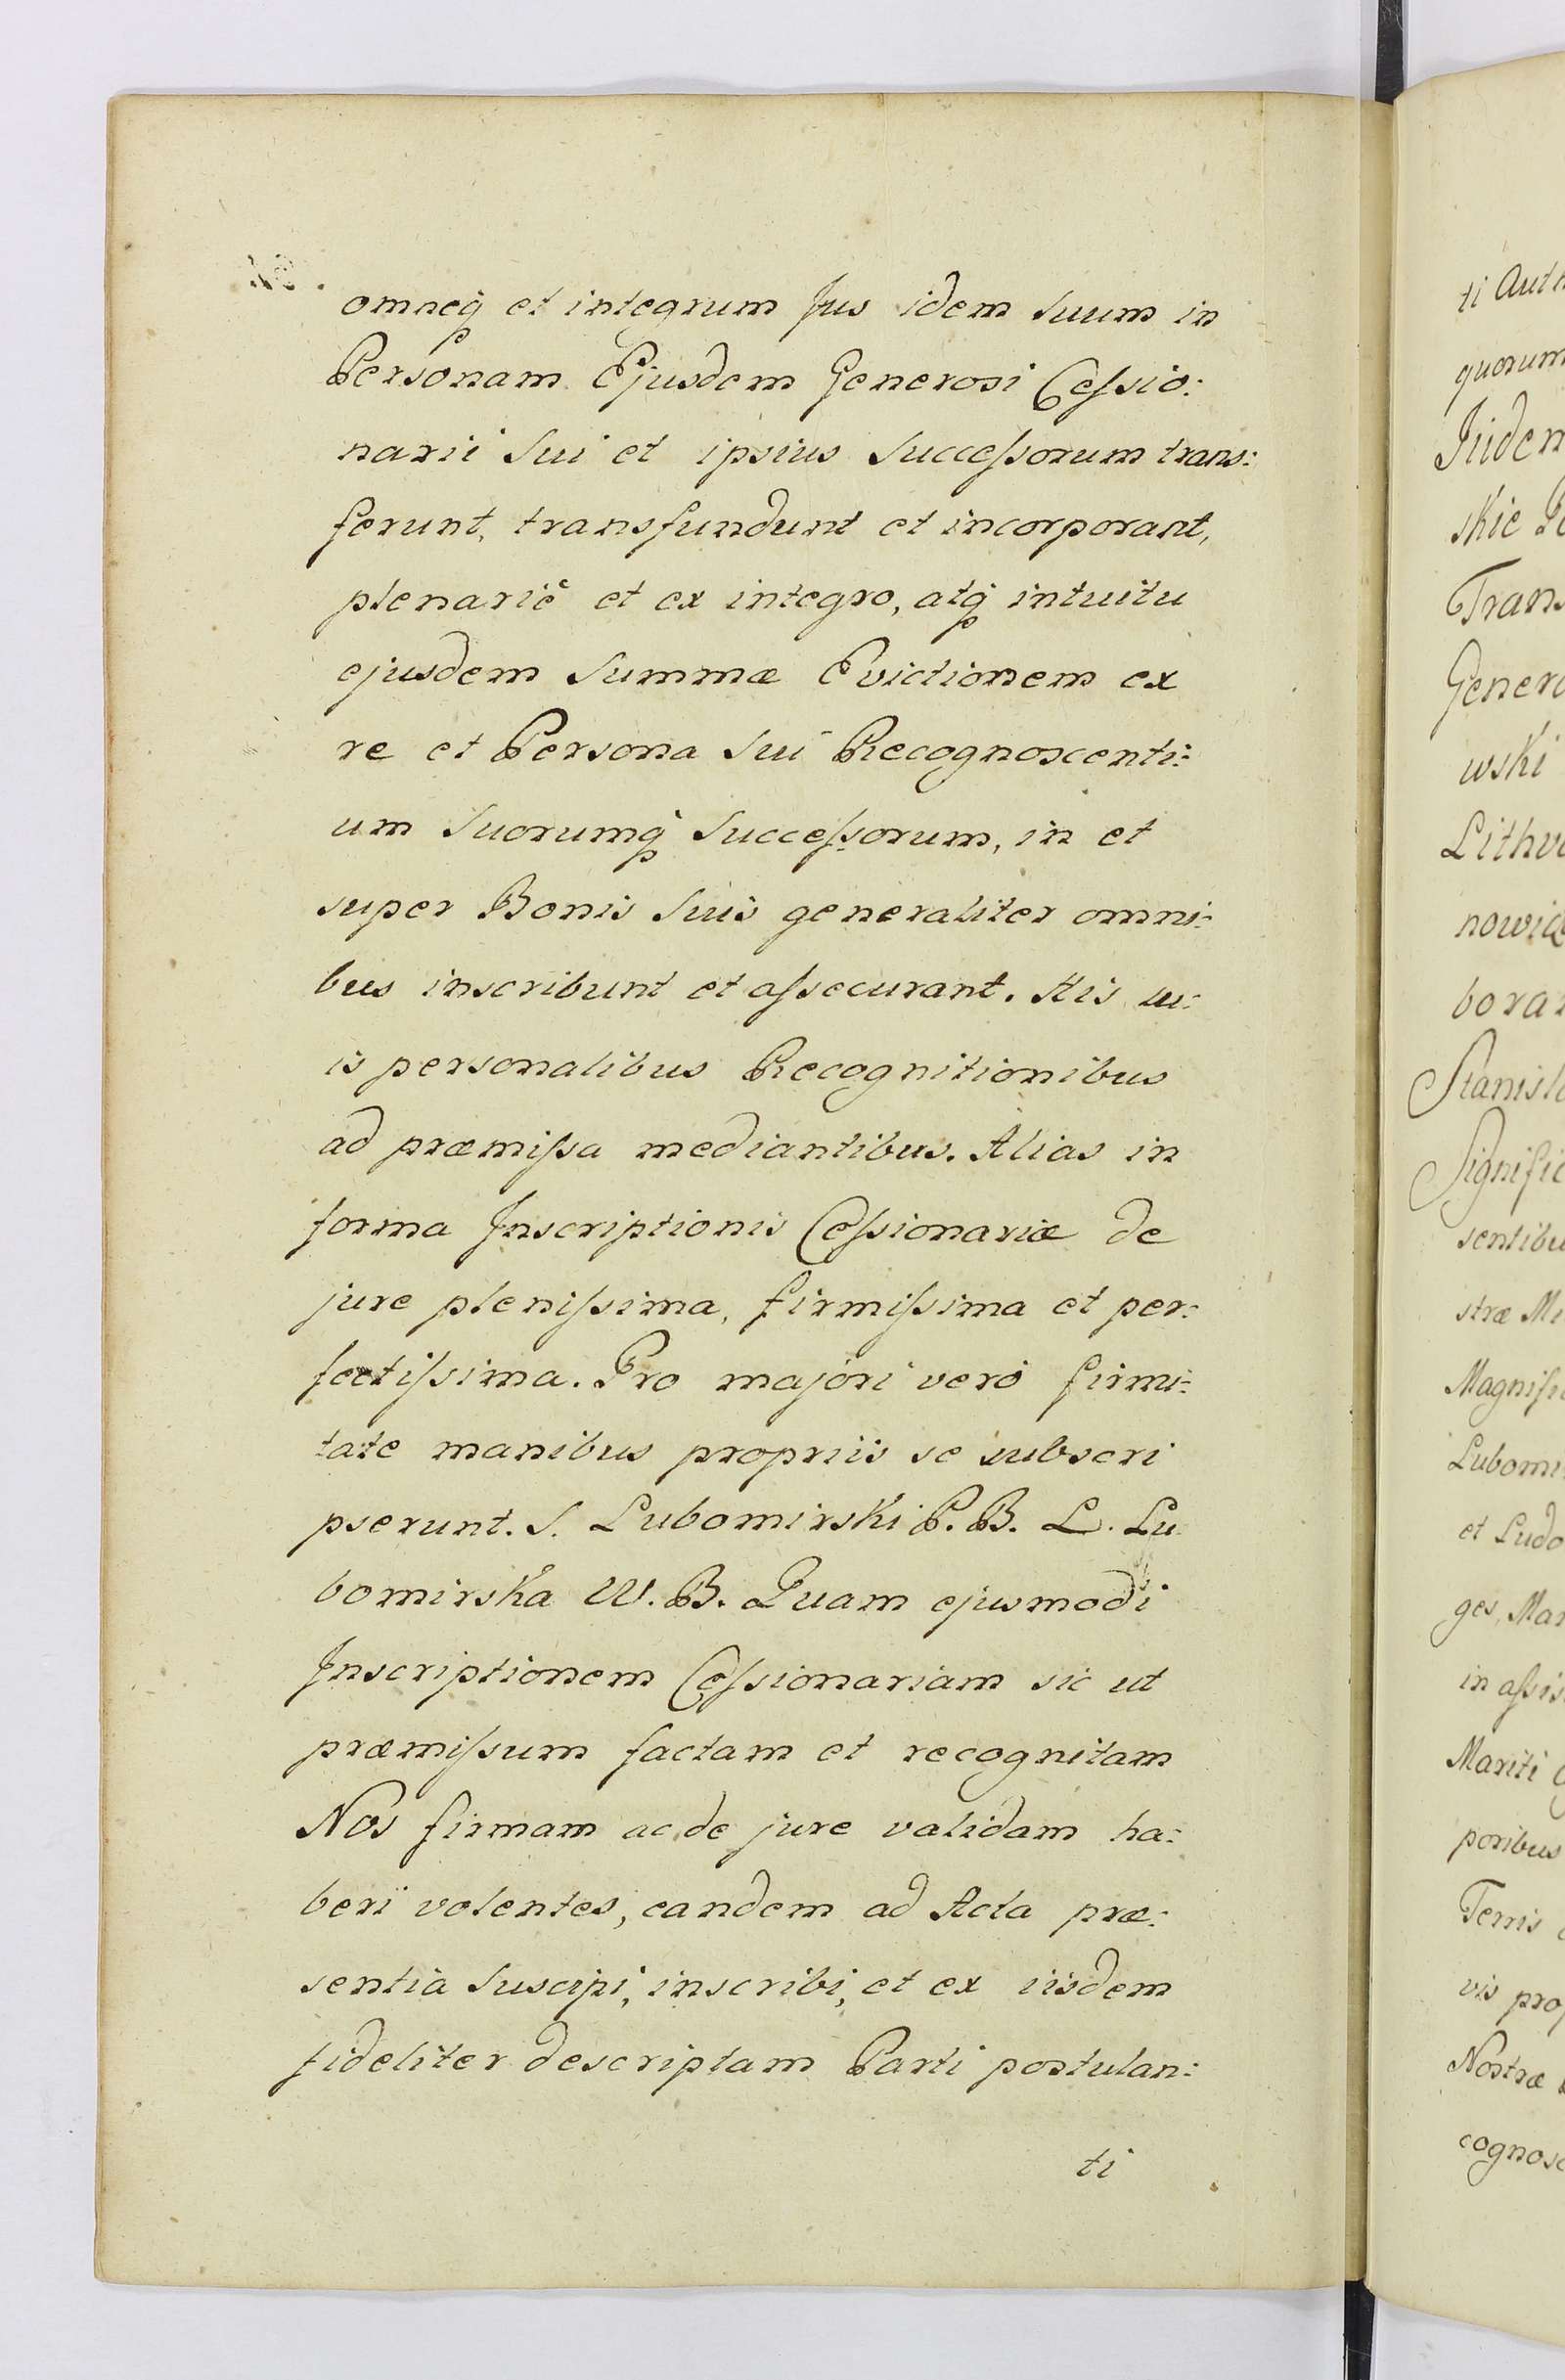 omneq̃ et integrum Jus idem Suum in
Personam Ejusdem Generosi Ceſsio:
narii Sui et ipsius Succeſsorum trans:
ferunt, transfundunt et incorporant,
plenariè et ex integro, atq̃ intuitu
ejusdem Summæ Evictionem ex
re et Persona Sui Recognoscenti:
um Suorumq̃ Succeſsorum, in et
super Bonis Suis generaliter omni:
bus inscribunt et aſsecurant. His su:
is personalibus Recognitionibus
ad præmiſsa mediantibus. Alias in
forma Inscriptionis Ceſsionariæ de
jure pleniſsima, firmiſsima et per:
fectiſsima. Pro majori verò firmi:
tate manibus propriis se subscri
pserunt. S. Lubomirski P. B. L. Lu
bomirska W. B. Quam ejusmodi
Inscriptionem Ceſsionariam sic ut
præmiſsum factam et recognitam
Nos firmam ac de jure validam ha:
beri volentes, eandem ad Acta præ:
sentia Suscipi, inscribi, et ex iisdem
fideliter descriptam Parti postulan:
ti
ti Auth
quorum
Iidem
skie
Trans
Genero
wski
Lithv
nowic
borar
Stanisl
Signific
sentibu
stræ M
Magnifi
Lubomi
et Ludo
ges, Mar
in aſsis
Mariti
poribus
Terris
vis prop
Nostræ
cognosc